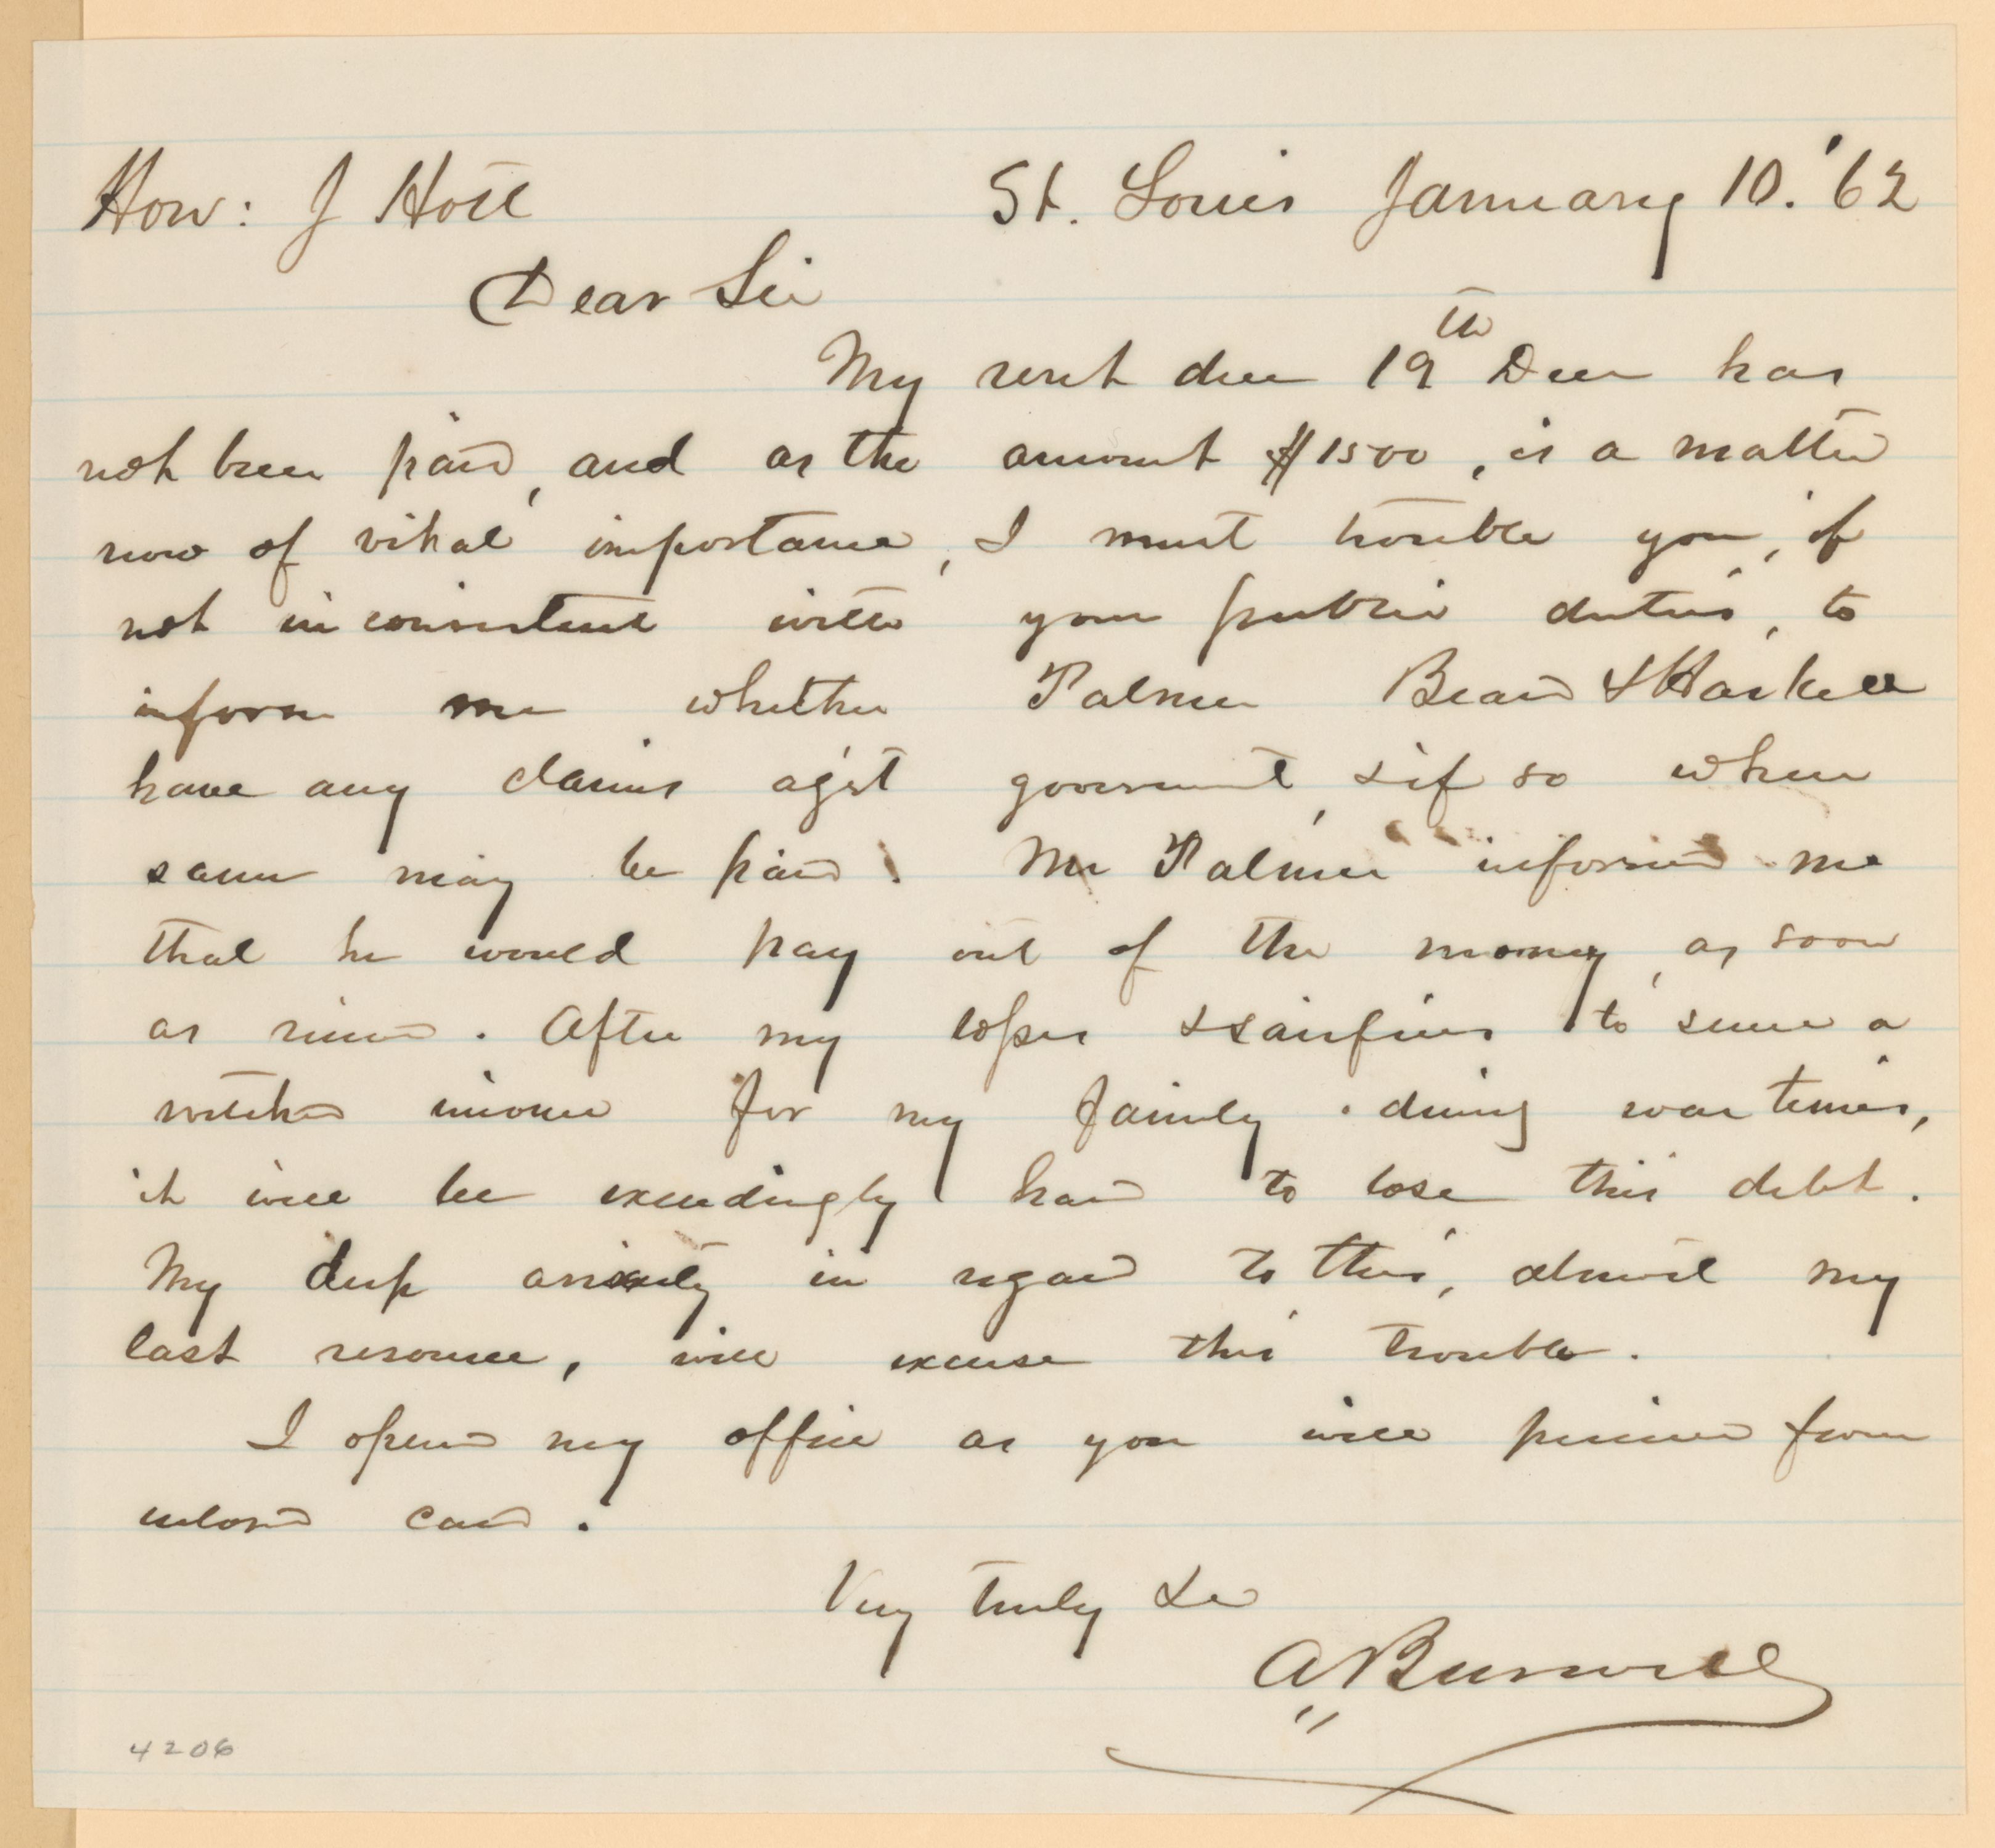 Hon: J Holt
St. Louis January 10. '62
Dear Sir
My rent due 19th Decr has
not been paid, and as the amount $1500, is a matter
now of vital importance, I must trouble you, if
not inconsistent with your public duties, to
inform me whether Palmer Beard & Haskell
have any claims ag'st government, & if so when
same may be paid. Mr Palmer informed me
that he would pay out of the money, as soon
as received. After my losses & sacrifices to secure a
wretched income for my family during war times,
it will be exceedingly hard to lose this debt.
My deep anxiety in regard to this, almost my
last resource, will excuse this trouble.
I opened my office as you will perceive from
inclosed card.
Very truly &c
A Burwell
4206